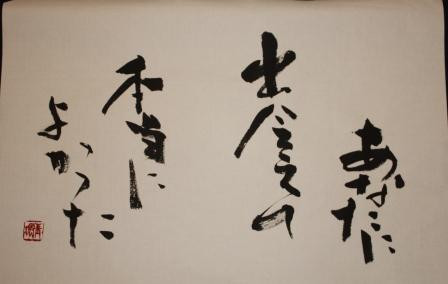 あなたに
出会えて
本当に
よかった